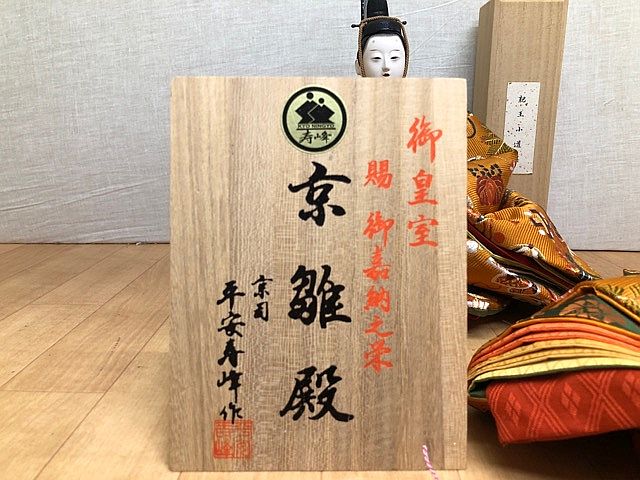 御皇室
賜 御嘉納之栄
KYO NINGYO
寿峰
京雛殿
京司
平安寿峰作